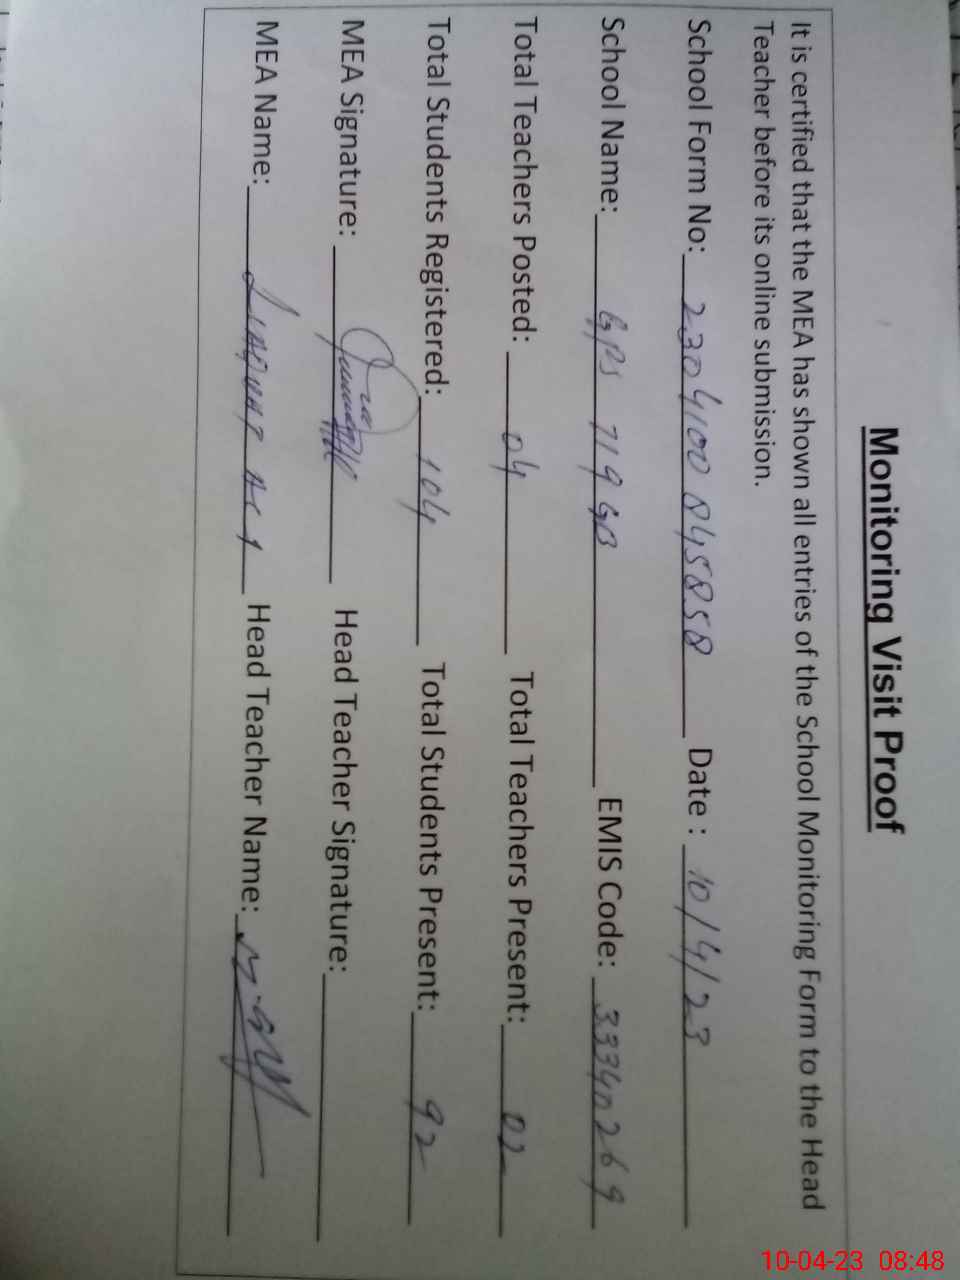 Monitoring Visit Proof
It is certified that the MEA has shown all entries of the School Monitoring Form to the Head
Teacher before its online submission.
School Form No: 2304100845858 Date : 10/4/23
School Name: GPS 719 GB EMIS Code: 33340269
Total Teachers Posted: 04 Total Teachers Present: 02
Total Students Registered: 104 Total Students Present: 92
MEA Signature: Head Teacher Signature:
MEA Name: Head Teacher Name:
10-04-23 08:48